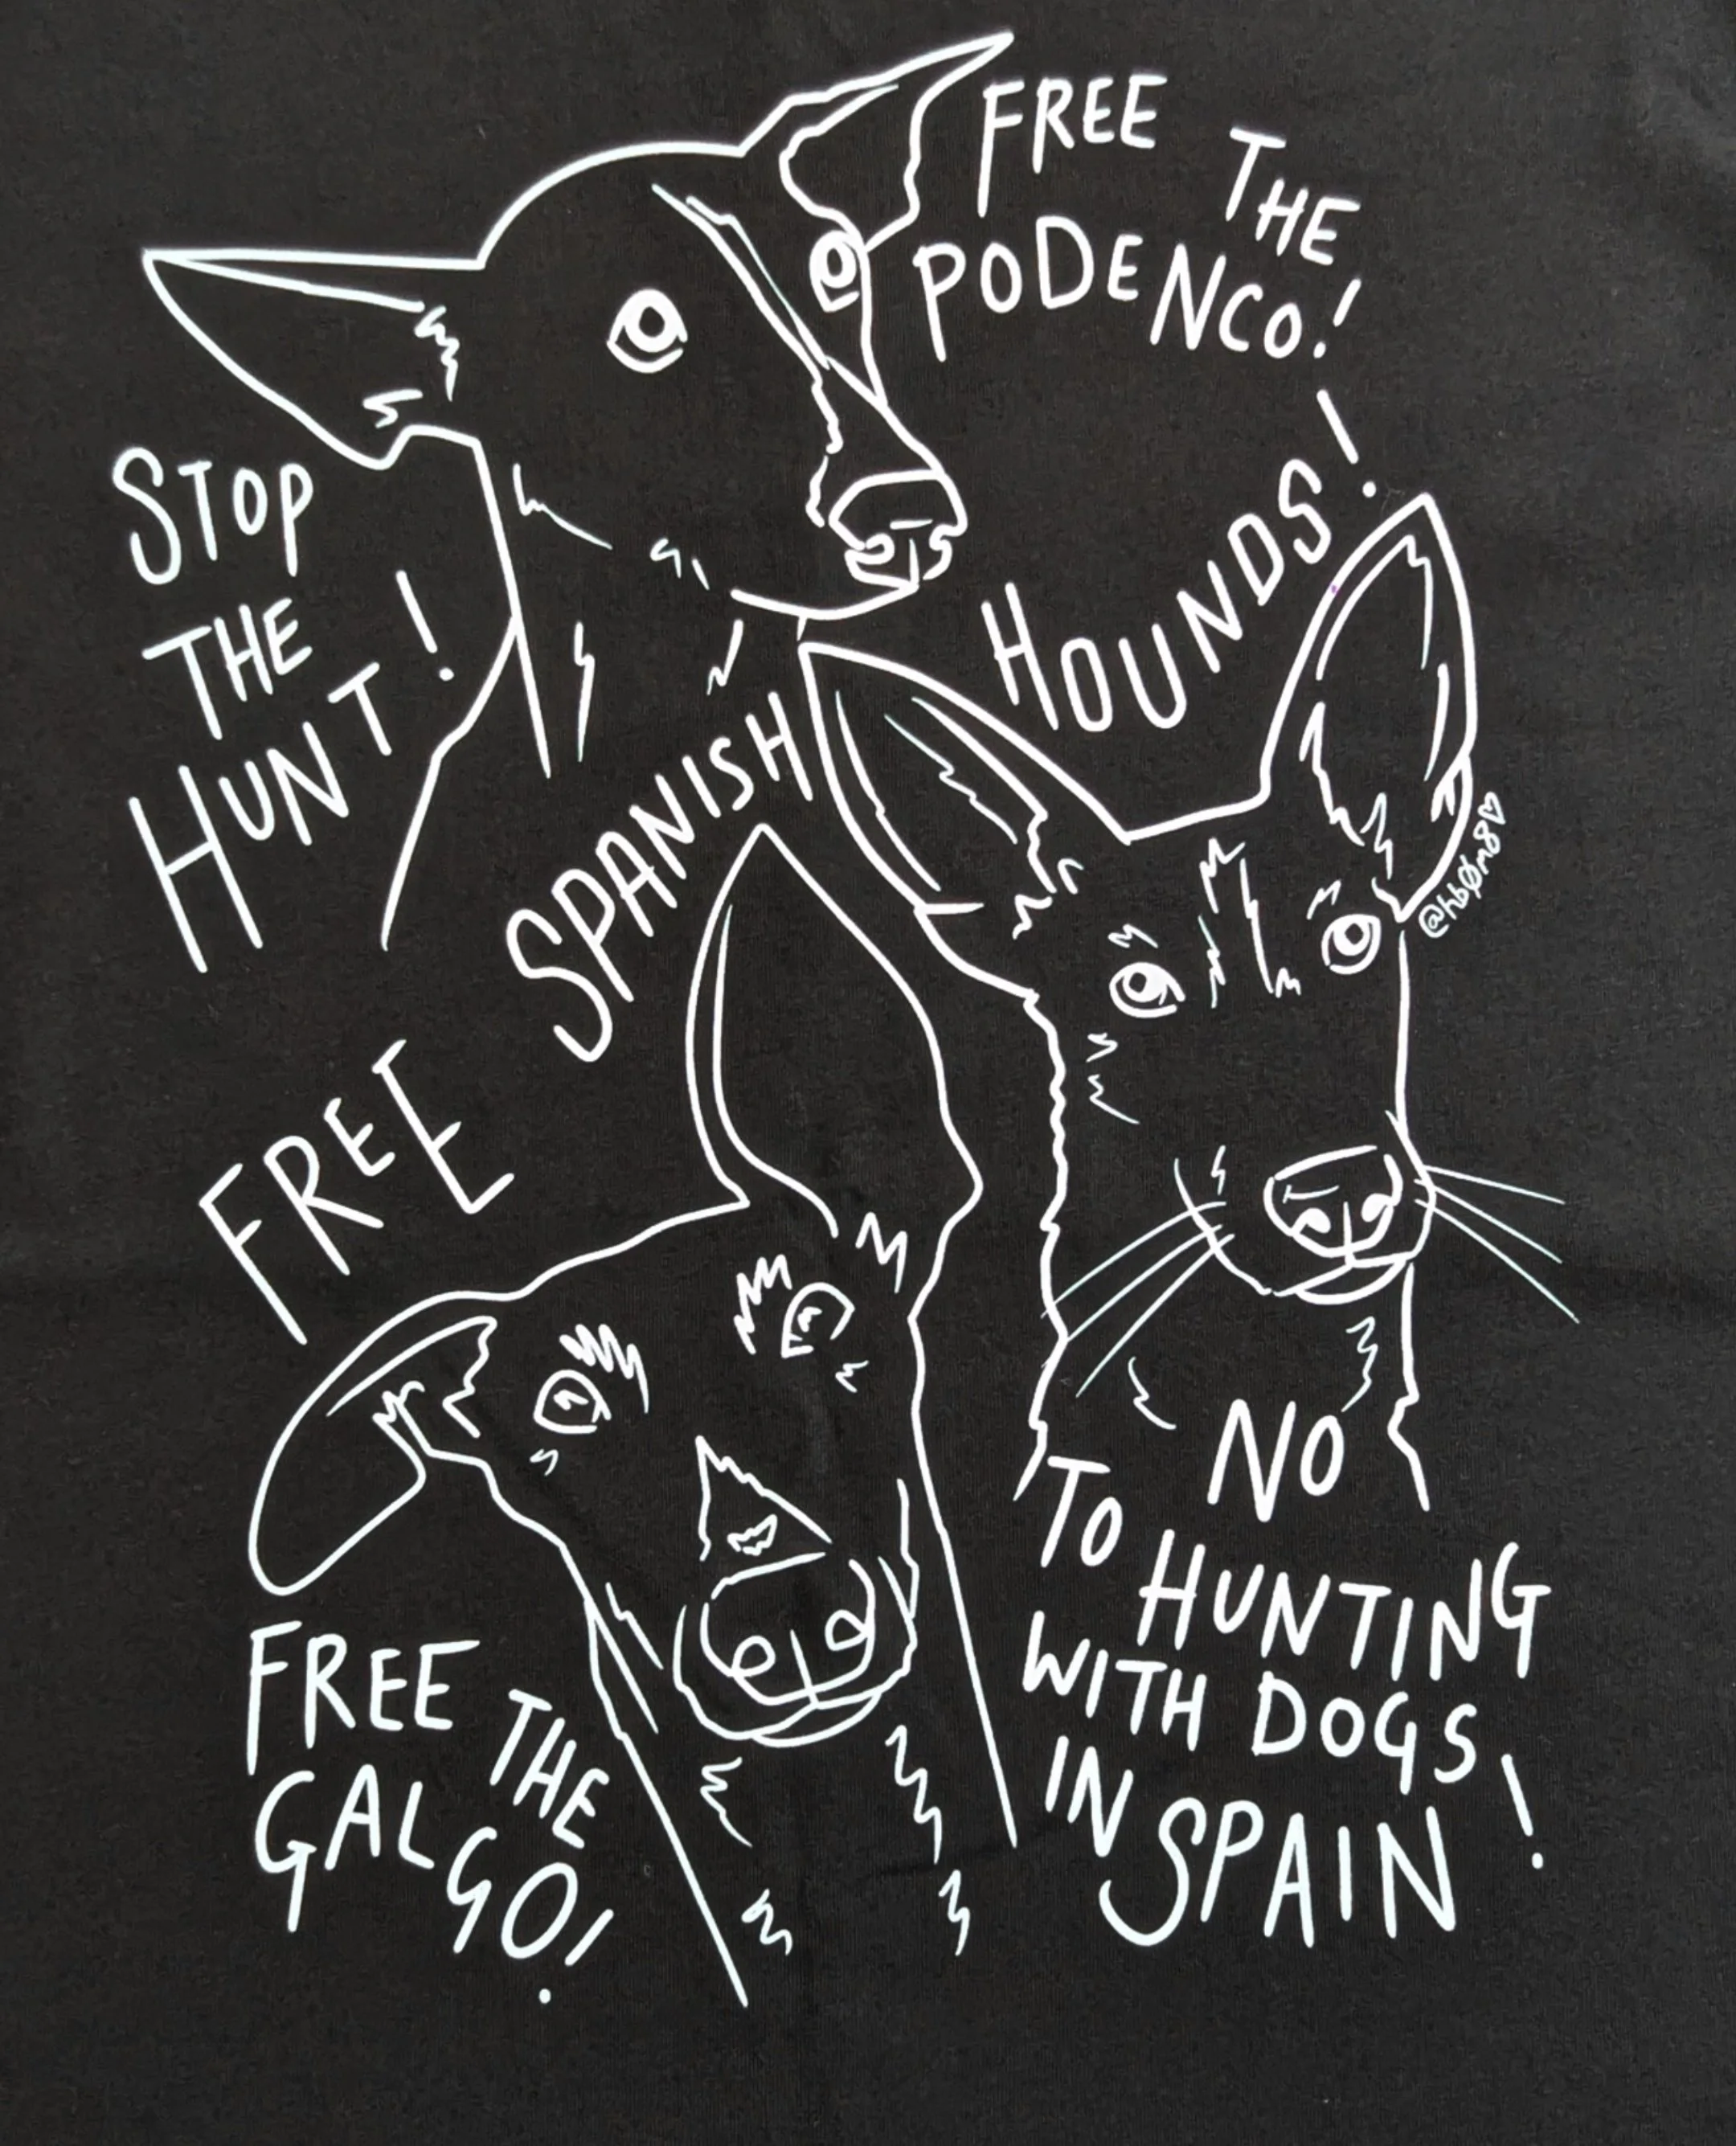 FREE THE
PODENCO!
STOP
THE
HUNT!
FREE SPANISH HOUNDS!
@hb0m8♡
FREE THE
GALGO!
NO
TO HUNTING
WITH DOGS
IN SPAIN!